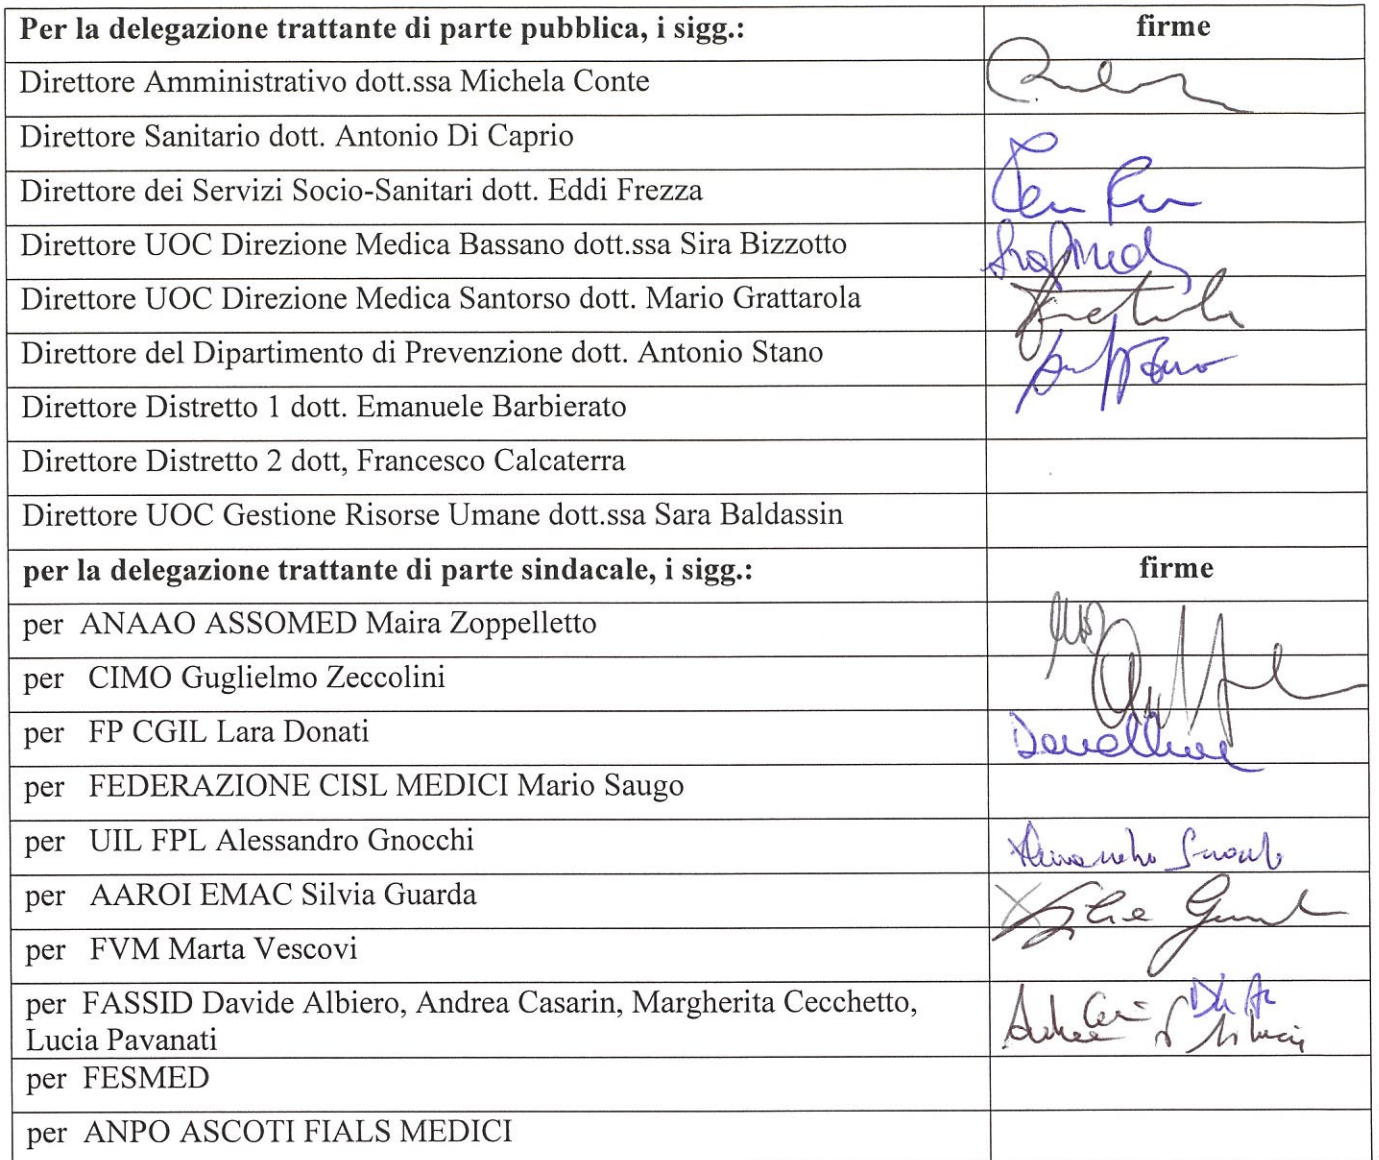 Per la delegazione trattante di parte pubblica, i sigg.: firme
Direttore Amministrativo dott.ssa Michela Conte
Direttore Sanitario dott. Antonio Di Caprio
Direttore dei Servizi Socio-Sanitari dott. Eddi Frezza
Direttore UOC Direzione Medica Bassano dott.ssa Sira Bizzotto
Direttore UOC Direzione Medica Santorso dott. Mario Grattarola
Direttore del Dipartimento di Prevenzione dott. Antonio Stano
Direttore Distretto 1 dott. Emanuele Barbierato
Direttore Distretto 2 dott, Francesco Calcaterra
Direttore UOC Gestione Risorse Umane dott.ssa Sara Baldassin
per la delegazione trattante di parte sindacale, i sigg.: firme
per ANAAO ASSOMED Maira Zoppelletto
per CIMO Guglielmo Zeccolini
per FP CGIL Lara Donati
per FEDERAZIONE CISL MEDICI Mario Saugo
per UIL FPL Alessandro Gnocchi
per AAROI EMAC Silvia Guarda
per FVM Marta Vescovi
per FASSID Davide Albiero, Andrea Casarin, Margherita Cecchetto,
Lucia Pavanati
per FESMED
per ANPO ASCOTI FIALS MEDICI